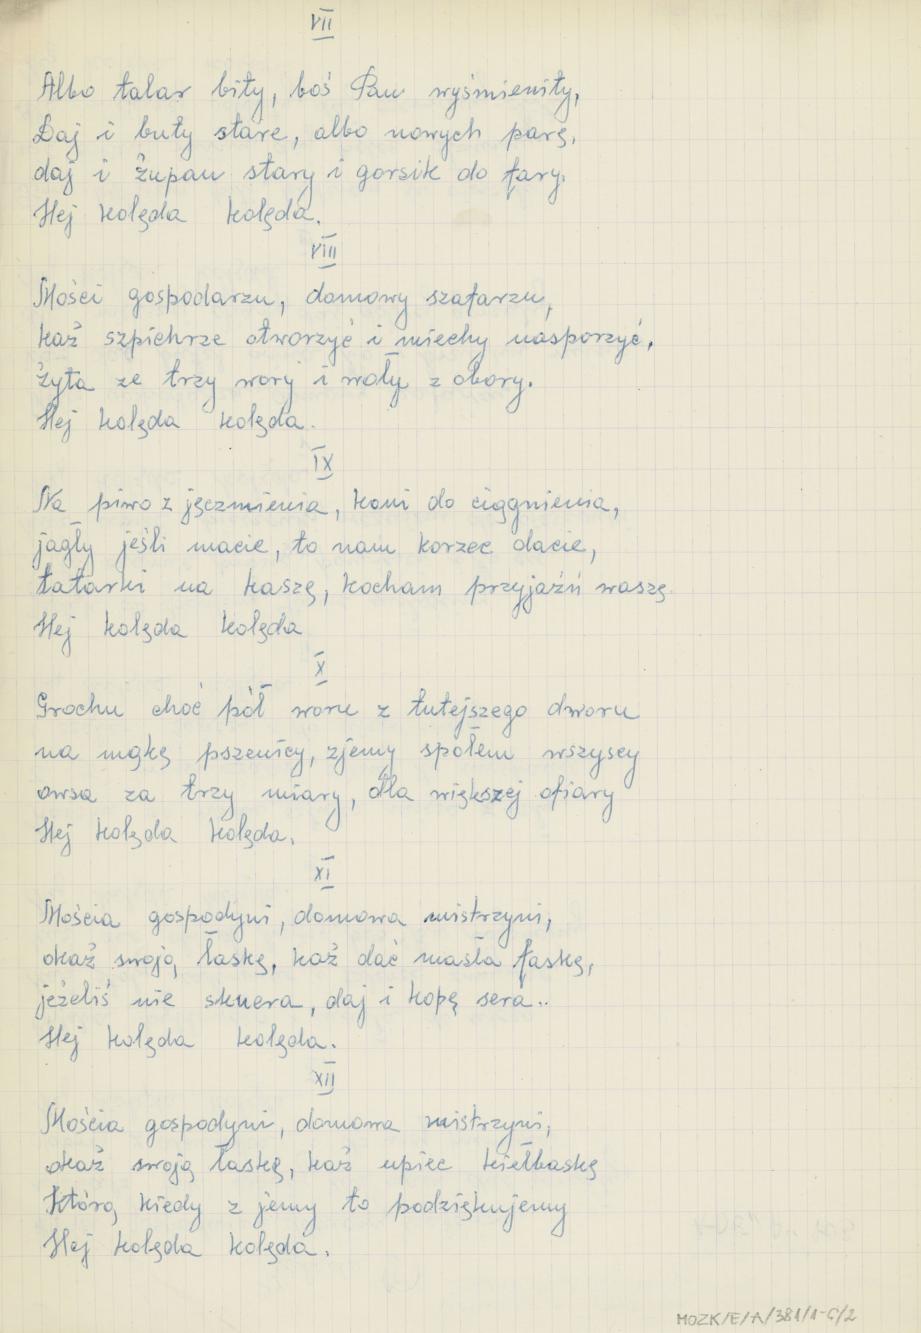 VII
Albo talar bity, boś Pan wyśmienity,
Daj i buty stare, albo nowych parę,
daj i żupan stary i gorsik do fary.
Hej kolęda kolęda.
VIII
Mości gospodarzu, domowy szafarzu,
każ szpichrze otworzyć i miechy nasporzyć,
żyta ze trzy wory i woły z obory.
Hej kolęda kolęda.
IX
Na piwo z jęczmienia, koni do ciągnienia,
jagły jeśli macie, to nam korzec dacie,
tatarki na kaszę, kocham przyjaźń waszę
Hej kolęda kolęda
X
Grochu choć pół woru z tutejszego dworu
na mąkę pszenicy, zjemy społem wszyscy
owsa za trzy miary, dla większej ofiary
Hej kolęda kolęda.
XI
Mościa gospodyni, domowa mistrzyni,
okaż swoją łaskę, każ dać masła faskę,
jeżeliś nie sknera, daj i kopę sera..
Hej kolęda kolęda.
XII
Mościa gospodyni, domowa mistrzyni,
okaż swoją łaskę, każ upiec kiełbaskę
Którą kiedy z jemy to podziękujemy
Hej kolęda kolęda.
MOZK/E/A/381/1-6/2